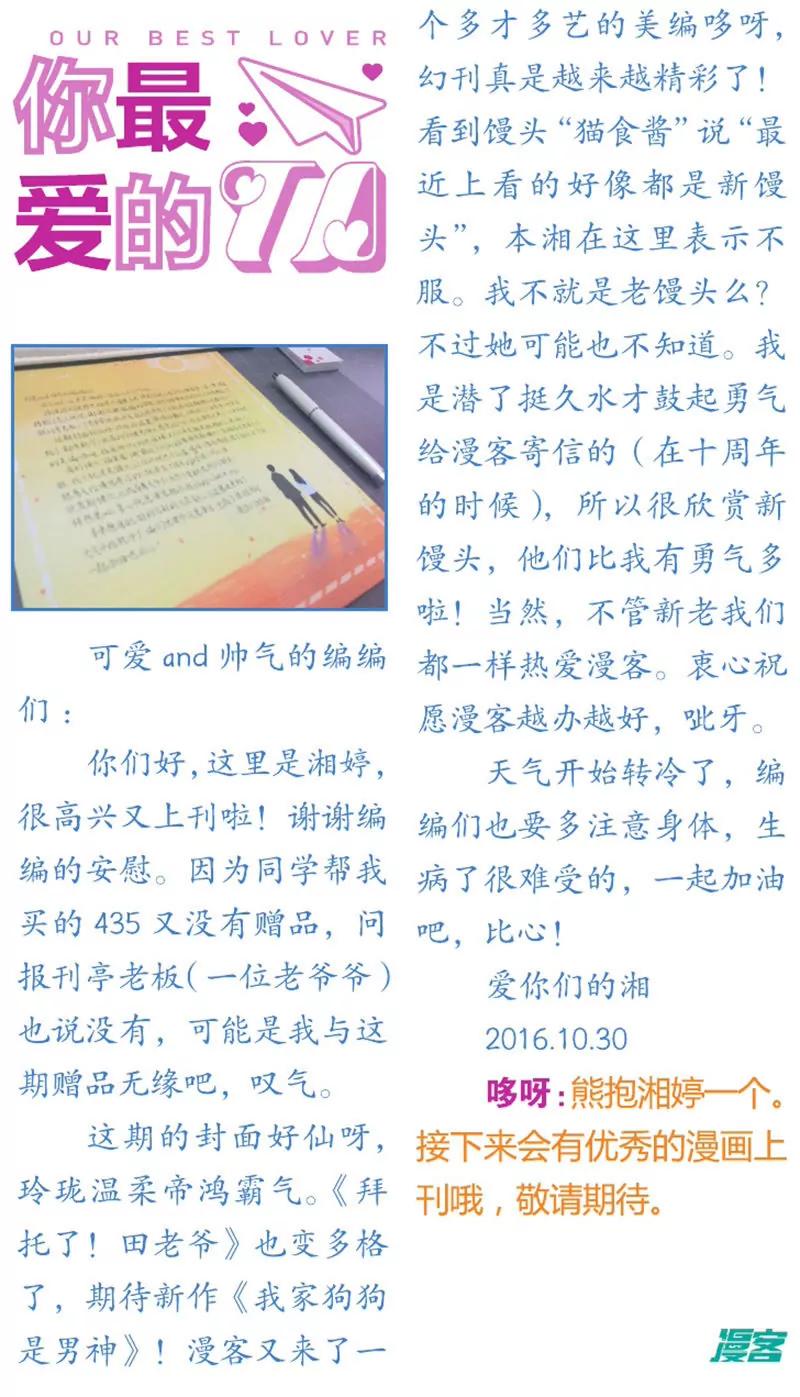 OUR BEST LOVER
你最
爱的TA
可爱 and 帅气的编编
们：
你们好，这里是湘婷，
很高兴又上刊啦！谢谢编
编的安慰。因为同学帮我
买的 435 又没有赠品，问
报刊亭老板（一位老爷爷）
也说没有，可能是我与这
期赠品无缘吧，叹气。
这期的封面好仙呀，
玲珑温柔帝鸿霸气。《拜
托了！田老爷》也变多格
了，期待新作《我家狗狗
是男神》！漫客又来了一
个多才多艺的美编哆呀，
幻刊真是越来越精彩了！
看到馒头“猫食酱”说“最
近上看的好像都是新馒
头”，本湘在这里表示不
服。我不就是老馒头么？
不过她可能也不知道。我
是潜了挺久水才鼓起勇气
给漫客寄信的（在十周年
的时候），所以很欣赏新
馒头，他们比我有勇气多
啦！当然，不管新老我们
都一样热爱漫客。衷心祝
愿漫客越办越好，呲牙。
天气开始转冷了，编
编们也要多注意身体，生
病了很难受的，一起加油
吧，比心！
爱你们的湘
2016.10.30
哆呀：熊抱湘婷一个。
接下来会有优秀的漫画上
刊哦，敬请期待。
漫客